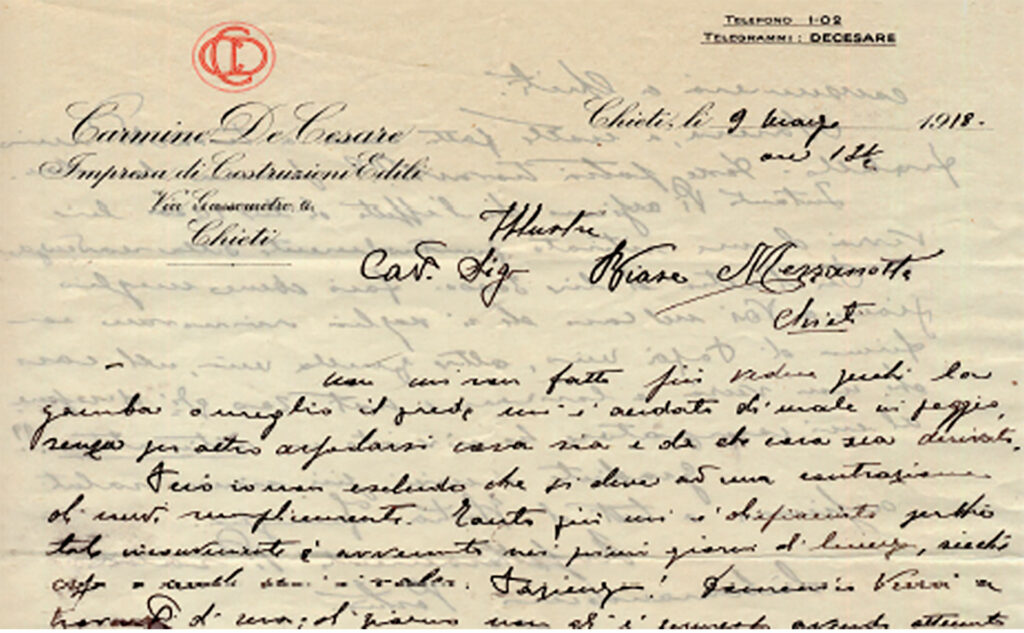 TELEFONO 1-02
TELEGRAMMI: DECESARE
CDC
Carmine De Cesare
Impresa di Costruzioni Edili
Via Gassometro, 6.
Chieti
Chieti, li 9 marzo 1918.
ore 12½
Illustre
Cav. Sig Biase Mezzanotte
Chieti
non mi son fatto più vedere perchè la
gamba o meglio il piede mi è andato di male in peggio,
senza per altro sapersi cosa sia e da che cosa sia derivato.
Però io non escludo che si deve ad una contrazione
di nervi semplicemente. Tanto più mi è dispiaciuto perchè
tale inconveniente è avvenuto nei primi giorni di licenza, sicchè
Pazienza! Domenico verrà a
di sera; di giorno non gli è